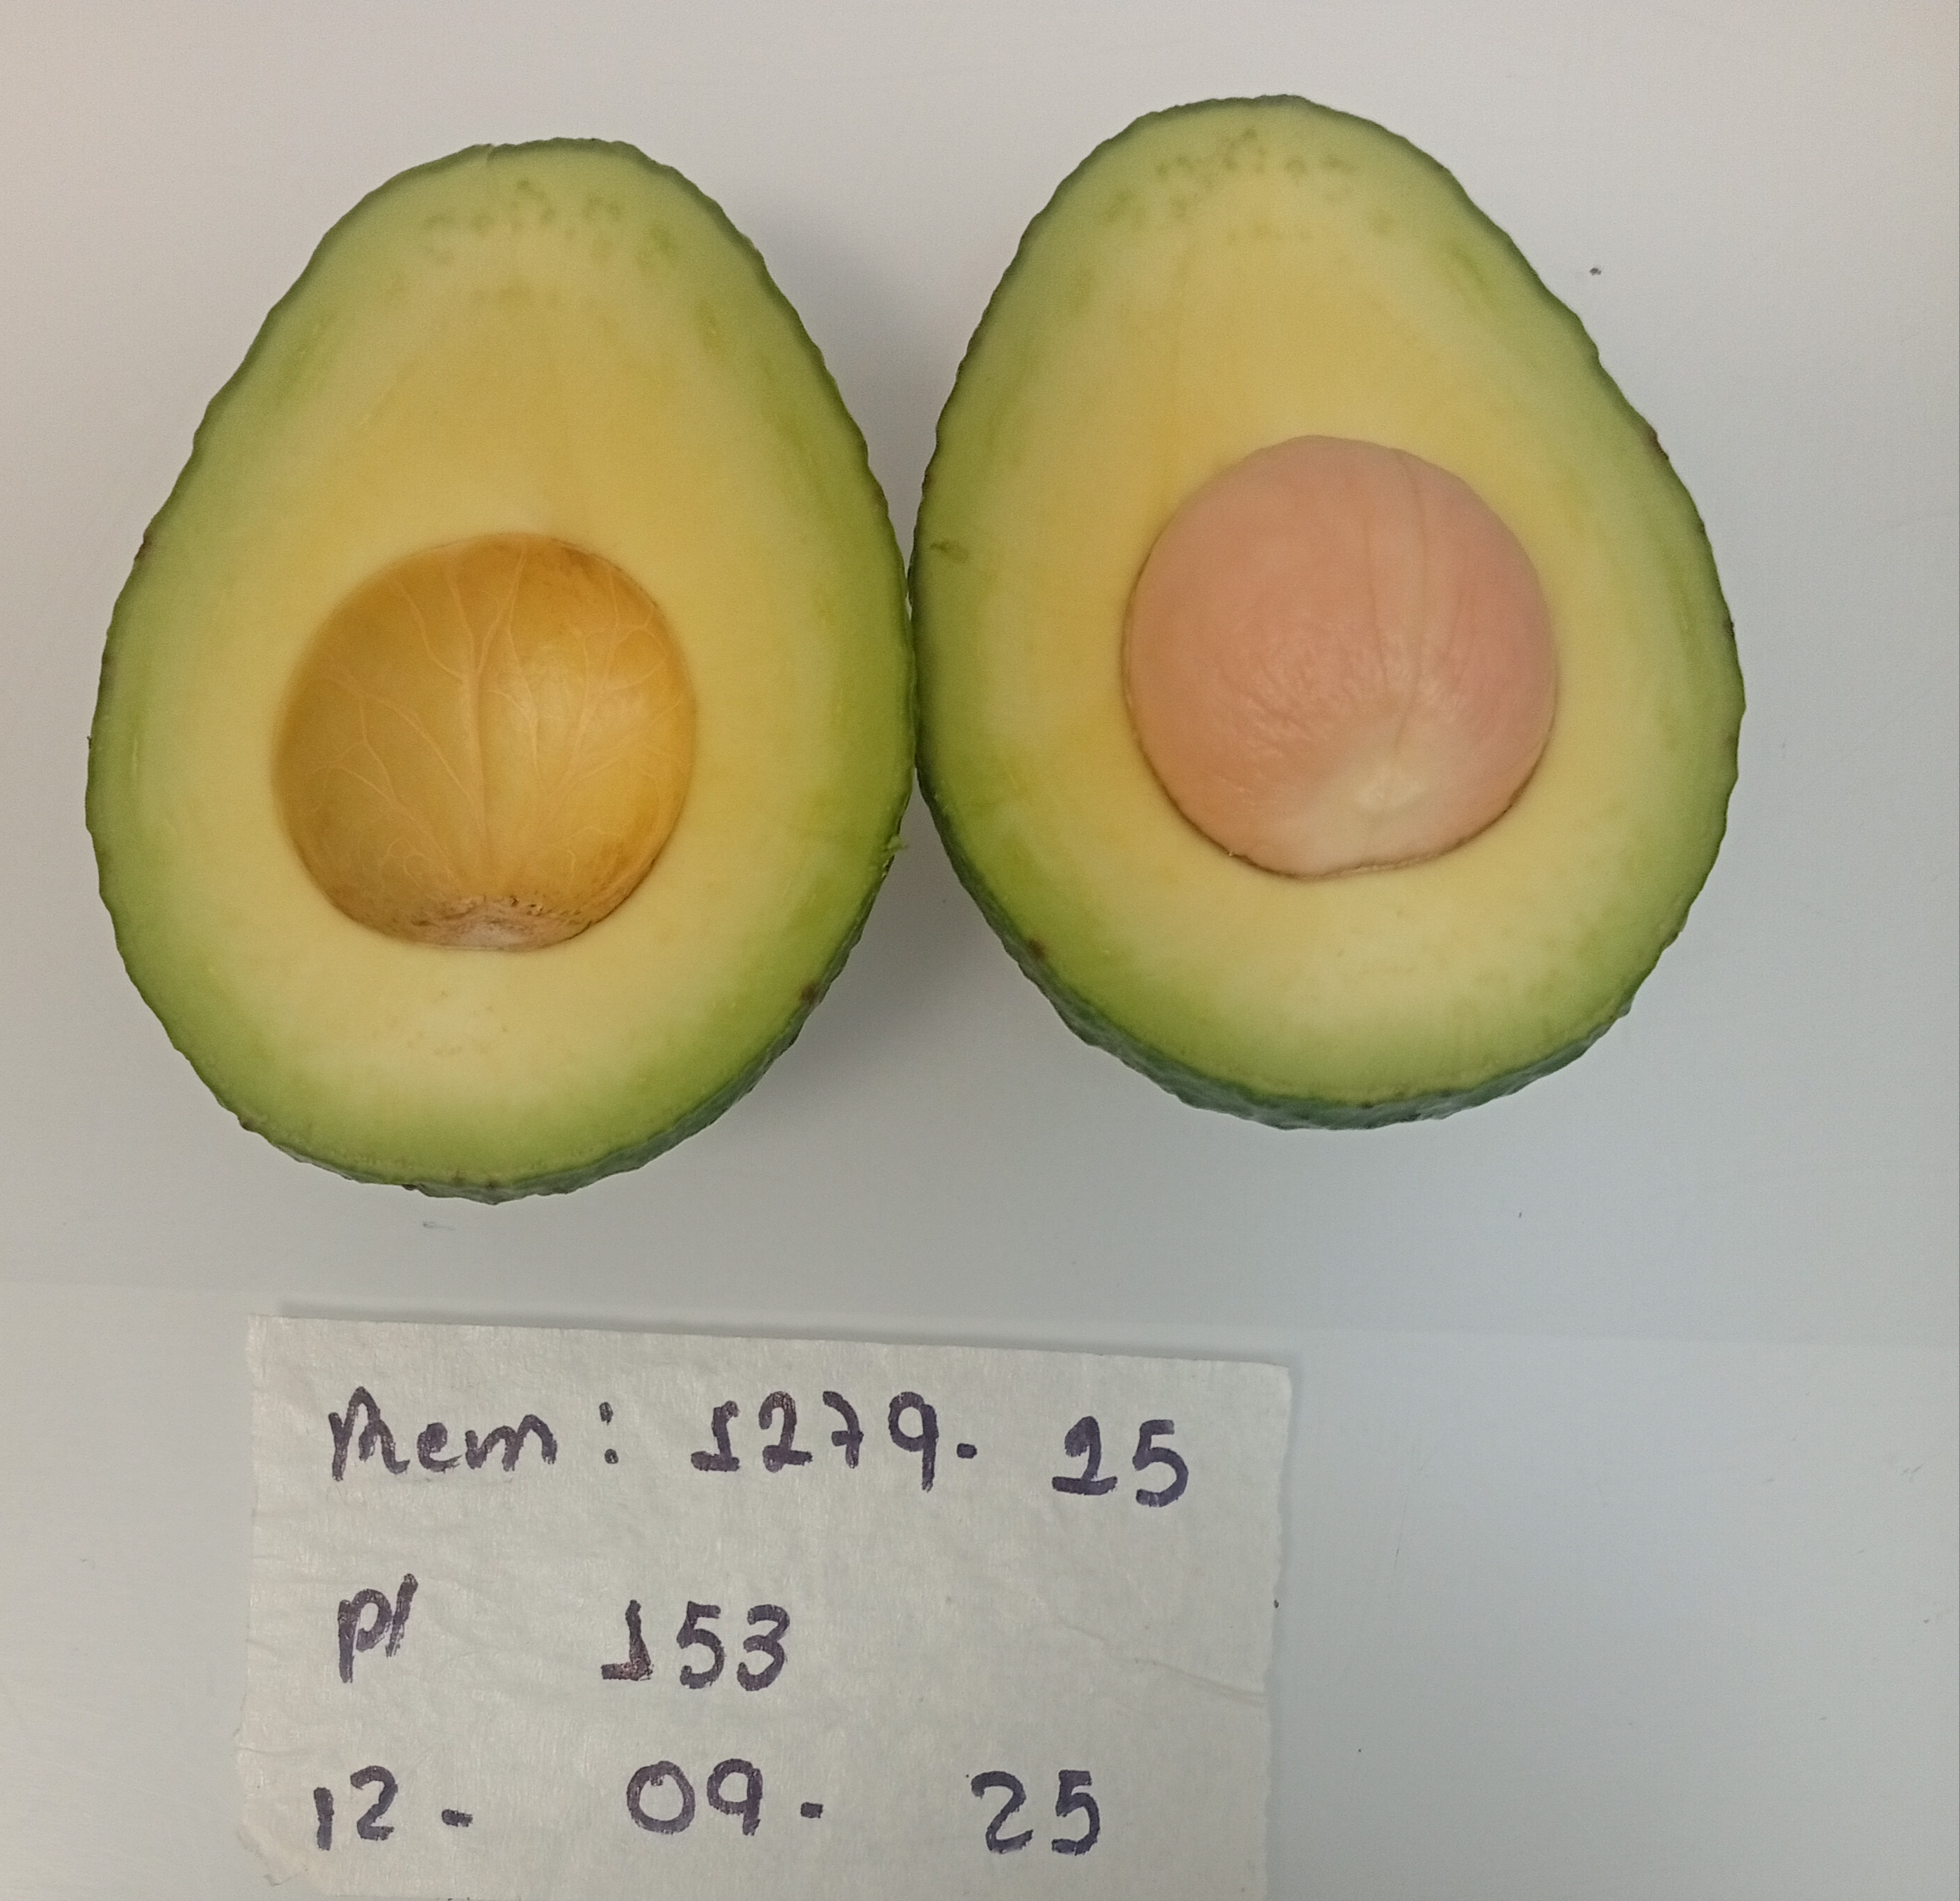 Rem: 1279. 25
pl 153
12. 09. 25